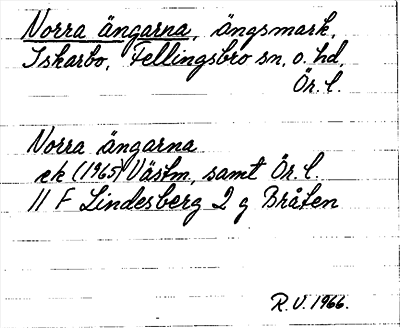 Norra ängarna, ängsmark,
Iskarbo, Fellingsbro sn, o. hd,
Ör. l.
Norra ängarna
ek (1965) Västm, samt Ör. l.
11 F Lindesberg 2 g Bråten
R.V. 1966.